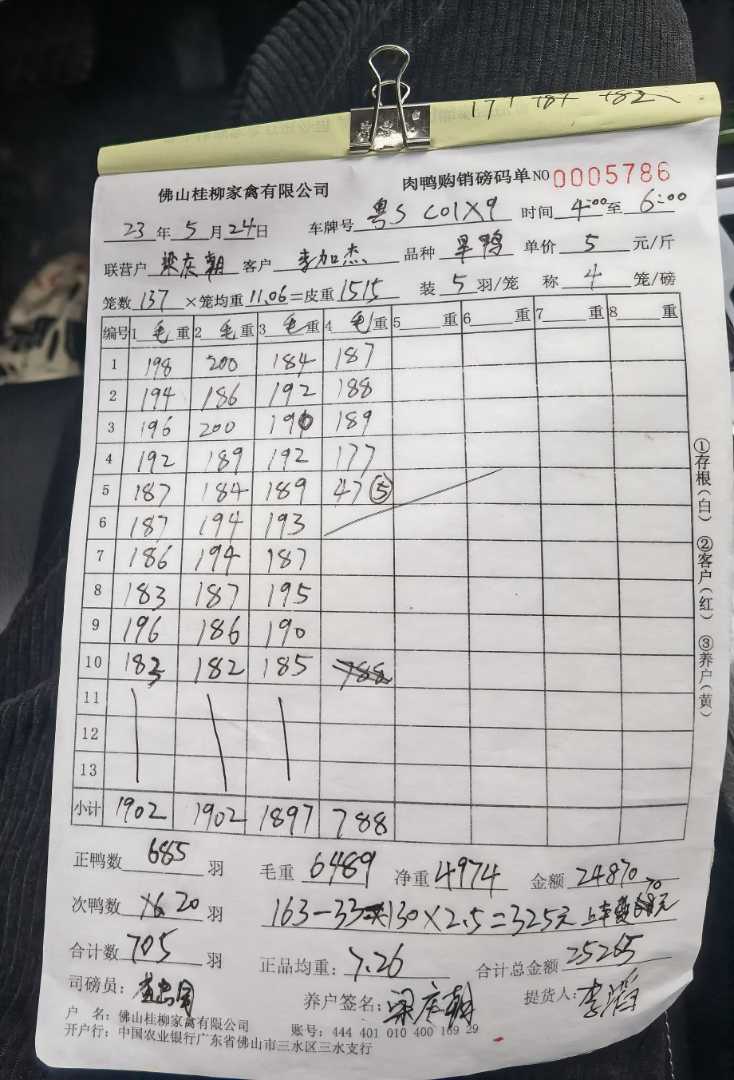 171 181 182
佛山桂柳家禽有限公司 肉鸭购销磅码单 NO 0005786
23 年 5 月 24 日 车牌号 粤S C01X9 时间 4:00 至 6:00
联营户 梁庆朝 客户 李加杰 品种 旱鸭 单价 5 元/斤
笼数 137 ×笼均重 11.06 =皮重 1515 装 5 羽/笼 称 4 笼/磅
编号 1 毛 重 2 毛 重 3 毛 重 4 毛 重 5 重 6 重 7 重 8 重
1 198 200 184 187
2 194 186 192 188
3 196 200 190 189
4 192 189 192 177
5 187 184 189 47 ⑤
6 187 194 193
7 186 194 187
8 183 187 195
9 196 186 190
10 183 182 185 788
11
12
13
小计 1902 1902 1897 788
正鸭数 685 羽 毛重 6489 净重 4974 金额 24870
次鸭数 20 羽 163-33=130×2.5=325元 上车费 70元
合计数 705 羽 正品均重: 7.26 合计总金额 25265
司磅员: 养户签名: 梁庆朝 提货人: 李滔
户 名: 佛山桂柳家禽有限公司 账号: 444 401 010 400 169 29
开户行: 中国农业银行广东省佛山市三水区三水支行
①存根(白) ②客户(红) ③养户(黄)